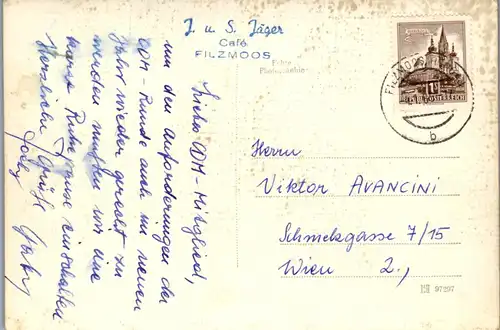 J. u. S. Jäger
Café
FILZMOOS
Echte
Liebes CDM-Mitglied,
um den Anforderungen der
CDM-Runde auch im neuen
Jahr wieder gerecht zu
werden müssen wir eine
kurze Ruhepause einschalten
Herzliche Grüße
FILZMOOS
b
1 S
REPUBLIK ÖSTERREICH
Herrn
Viktor AVANCINI
Schmelzgasse 7/15
Wien 2.,
97297